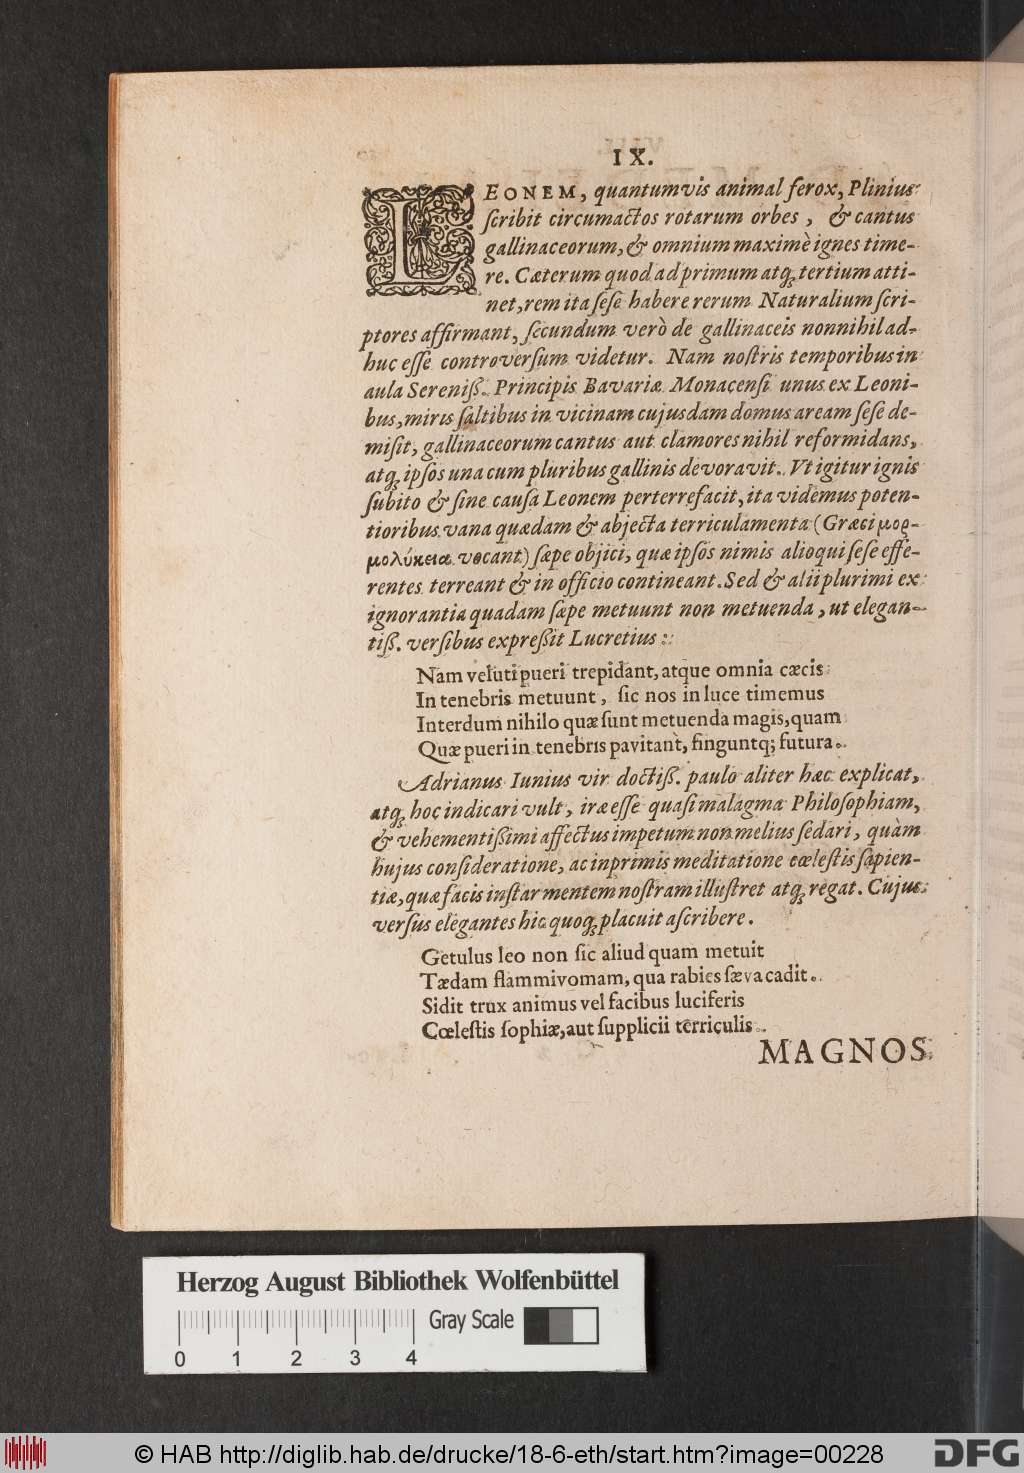 IX.
LEONEM, quantumvis animal ferox, Plinius
ſcribit circumactos rotarum orbes, & cantus
gallinaceorum, & omnium maximè ignes time-
re. Cæterum quod ad primum atq; tertium atti-
net, rem ita ſeſe habere rerum Naturalium ſcri-
ptores affirmant, ſecundum verò de gallinaceis nonnihil ad-
huc eſſe controverſum videtur. Nam noſtris temporibus in
aula Sereniß. Principis Bavariæ Monacenſi unus ex Leoni-
bus, miris ſaltibus in vicinam cujusdam domus aream ſeſe de-
miſit, gallinaceorum cantus aut clamores nihil reformidans,
atq; ipſos una cum pluribus gallinis devoravit. Vt igitur ignis
ſubito & ſine cauſa Leonem perterrefacit, ita videmus poten-
tioribus vana quædam & abjecta terriculamenta (Græci μορ-
μολύκεια vocant) ſæpe objici, quæ ipſos nimis alioqui ſeſe effe-
rentes terreant & in officio contineant. Sed & alii plurimi ex
ignorantia quadam ſæpe metuunt non metuenda, ut elegan-
tiß. verſibus expreßit Lucretius:
Nam veluti pueri trepidant, atque omnia cæcis
In tenebris metuunt, ſic nos in luce timemus
Interdum nihilo quæ ſunt metuenda magis, quam
Quæ pueri in tenebris pavitant, finguntq; futura.
Adrianus Iunius vir doctiß. paulo aliter hæc explicat,
atq; hoc indicari vult, iræ eſſe quaſi malagma Philoſophiam,
& vehementißimi affectus impetum non melius ſedari, quàm
hujus conſideratione, ac inprimis meditatione cœleſtis ſapien-
tiæ, quæ facis inſtar mentem noſtram illuſtret atq; regat. Cujus
verſus elegantes hic quoq; placuit aſcribere.
Getulus leo non ſic aliud quam metuit
Tædam flammivomam, qua rabies ſæva cadit.
Sidit trux animus vel facibus luciferis
Cœleſtis ſophiæ, aut ſupplicii terriculis.
MAGNOS
Herzog August Bibliothek Wolfenbüttel
Gray Scale
0 1 2 3 4
© HAB http://diglib.hab.de/drucke/18-6-eth/start.htm?image=00228
DFG